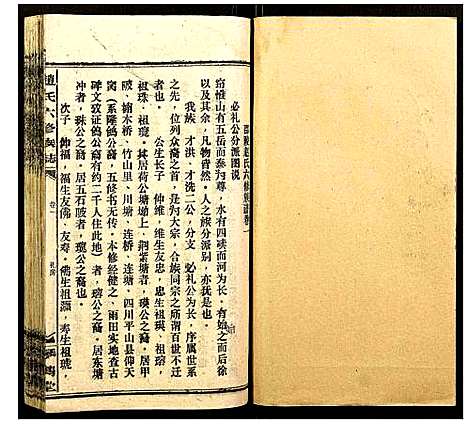 邵陵赵氏六修族谱卷一
必礼公分派图说
窃惟山有五岳而为尊，水有四渎而河为长。有始而后徐
以及其余，凡物皆然。人之族分派别，亦犹是也。
我族，才洪、才洗二公，分支 必礼公为长，序属世系
之先，位列众裔之首，是为大宗，合族同宗之所谓百世不迁
公生长子 仲维，维生友忠，忠生祖瑛、祖瑢、
祖珠、祖琬。其居荷公塘坳上、荆紫塘者，瑛公之裔。居甲
陂、鍮木桥、竹山里、川塘、连桥、连塘、四川平山县仰天
窝（系隆鸽公裔，五修书无传。本修经健之、雨田实地查古
碑文双证鸽公裔约有二千人住此地）者，瑢公之裔。居东塘
冲者，珠公之裔。居五石陂者，琬公之裔也。
次子 仲福，福生友佛、友寿。佛生祖灏，寿生祖琥
赵氏六修族谱
卷一
礼房